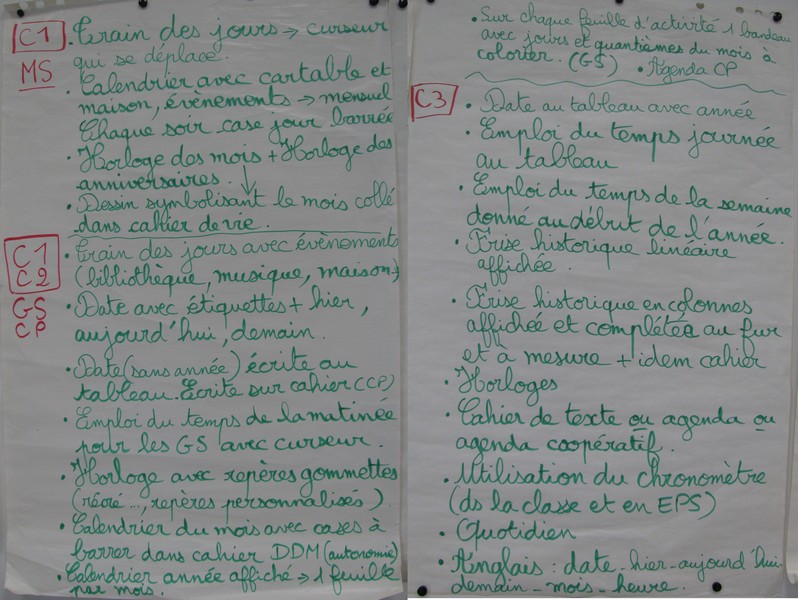 C1 . Train des jours → curseur
MS qui se déplace.
. Calendrier avec cartable et
maison, évènements → mensuel
Chaque soir case jour barrée
. Horloge des mois + Horloge des
anniversaires.
. Dessin symbolisant le mois collé
dans cahier de vie.
C1 . Train des jours avec évènements
C2 (bibliothèque, musique, maison)
GS . Date avec étiquettes + hier,
CP aujourd'hui, demain.
. Date (sans année) écrite au
tableau. Écrite sur cahier (CP)
. Emploi du temps de la matinée
pour les GS avec curseur.
. Horloge avec repères gommettes
(récré ..., repères personnalisés)
. Calendrier du mois avec cases à
barrer dans cahier DDM (autonomie)
. Calendrier année affiché → 1 feuille
par mois.
. Sur chaque feuille d'activité 1 bandeau
avec jours et quantièmes du mois à
colorier. (GS) . Agenda CP
C3 . Date au tableau avec année
. Emploi du temps journée
au tableau
. Emploi du temps de la semaine
donné au début de l'année.
. Frise historique linéaire
affichée.
. Frise historique en colonnes
affichée et complétée au fur
et à mesure + idem cahier
. Horloges
. Cahier de texte ou agenda ou
agenda coopératif.
. Utilisation du chronomètre
(ds la classe et en EPS)
. Quotidien
. Anglais : date - hier - aujourd'hui
demain - mois - heure.